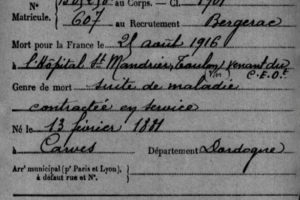 au Corps. — Cl. 1901
Matricule. 607 au Recrutement Bergerac
Mort pour la France le 25 août 1916
à l'Hôpital St Mandrier, Toulon, venant du
C.E.O.
Genre de mort suite de maladie
contractée en service
Né le 13 février 1881
à Carves Département Dordogne
Arrt municipal (pr Paris et Lyon),
à défaut rue et N°.